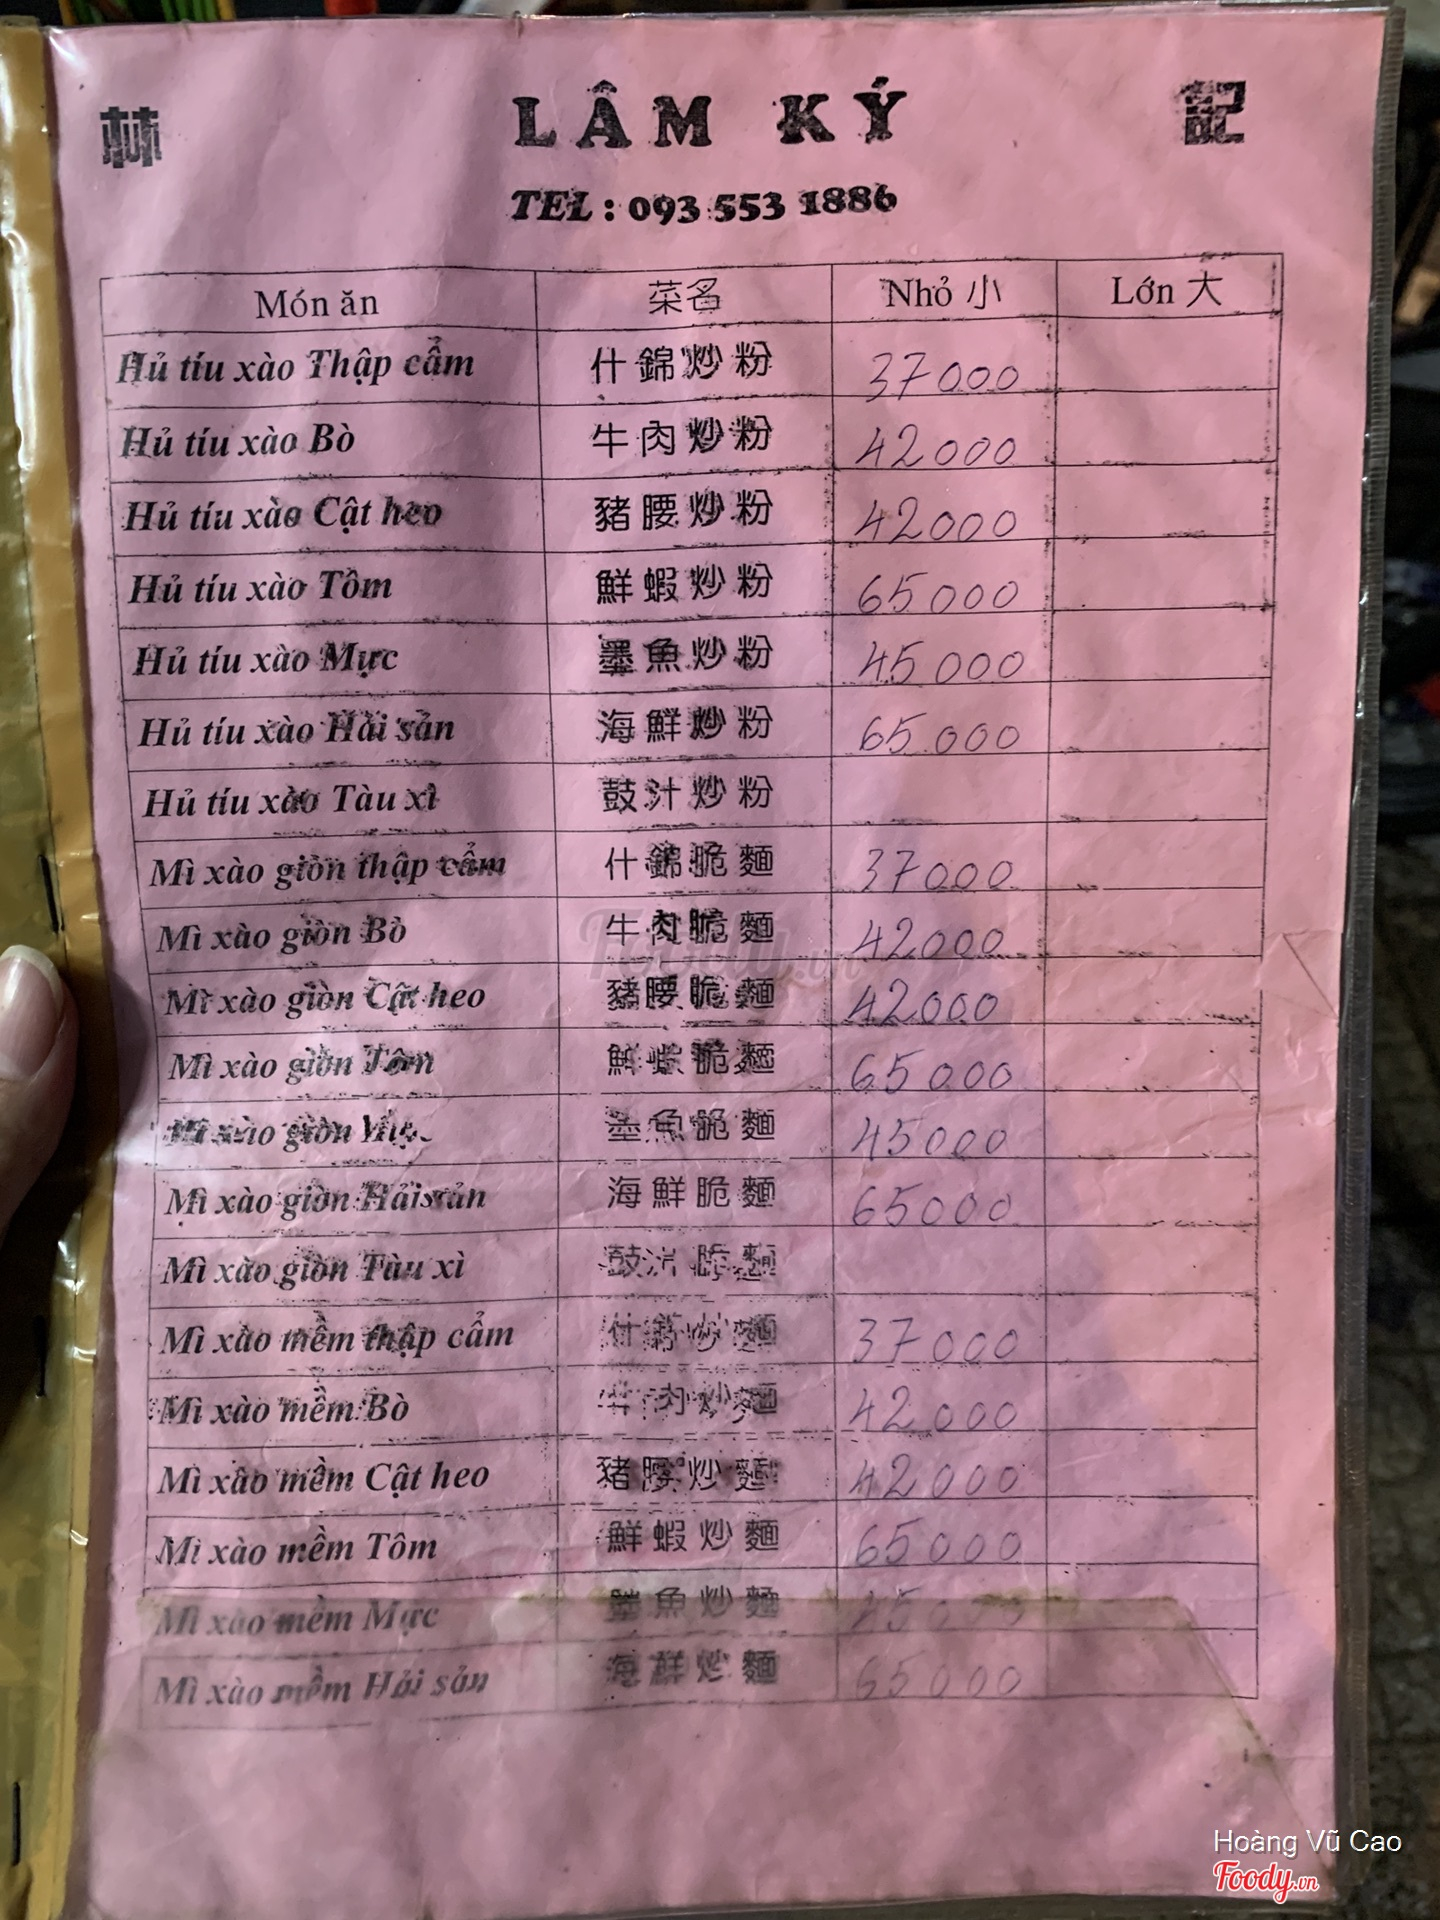 林 LÂM KÝ 記
TEL : 093 553 1886
Món ăn 菜名 Nhỏ 小 Lớn 大
Hủ tíu xào Thập cẩm 什錦炒粉 37000
Hủ tíu xào Bò 牛肉炒粉 42000
Hủ tíu xào Cật heo 豬腰炒粉 42000
Hủ tíu xào Tôm 鮮蝦炒粉 65000
Hủ tíu xào Mực 墨魚炒粉 45000
Hủ tíu xào Hải sản 海鮮炒粉 65000
Hủ tíu xào Tàu xì 鼓汁炒粉
Mì xào giòn thập cẩm 什錦脆麵 37000
Mì xào giòn Bò 牛肉脆麵 42000
Mì xào giòn Cật heo 豬腰脆麵 42000
Mì xào giòn Tôm 鮮蝦脆麵 65000
Mì xào giòn Mực 墨魚脆麵 45000
Mì xào giòn Hải sản 海鮮脆麵 65000
Mì xào giòn Tàu xì 鼓汁脆麵
Mì xào mềm thập cẩm 什錦炒麵 37000
Mì xào mềm Bò 牛肉炒麵 42000
Mì xào mềm Cật heo 豬腰炒麵 42000
Mì xào mềm Tôm 鮮蝦炒麵 65000
Mì xào mềm Mực 墨魚炒麵 45000
Mì xào mềm Hải sản 海鮮炒麵 65000
Foody.vn
Hoàng Vũ Cao
Foody.vn